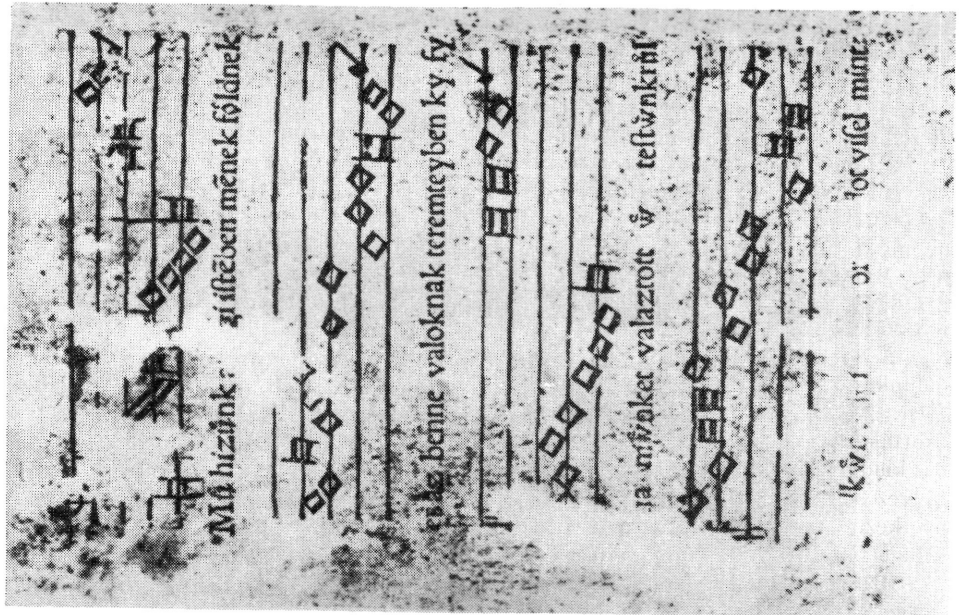 Mÿ hizúnk: zí iſtēben mēnek fóldnek
es az benne valoknak teremteyben ky fy
ıa mívnket valazrott ẘ teſtẘnkrúl
ſot viſel mínt: